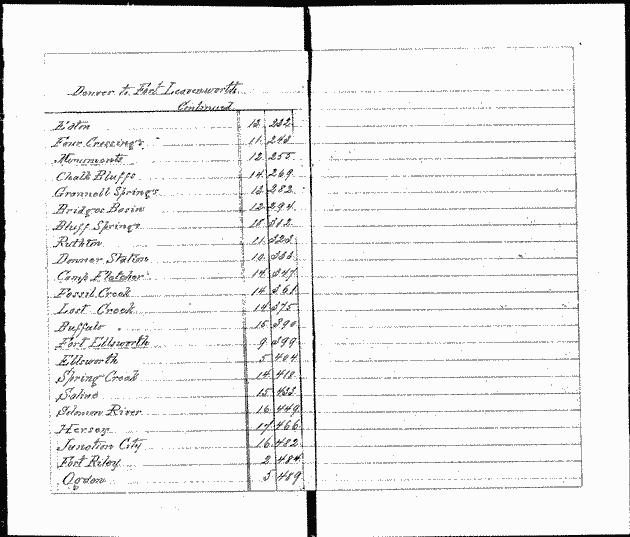 Denver to Fort Leavenworth
Continued
Edten 12 232
Four Crossings 11 243
Monuments 12 255
Chalk Bluffs 14 269
Grannell Springs 13 282
Bridges Basin 12 294
Bluff Springs 18 312
Ruthtn 11 323
Downer Station 10 333
Camp Fletcher 14 347
Fossil Creek 14 361
Lost Creek 14 375
Buffalo 15 390
Fort Ellsworth 9 399
Ellsworth 5 404
Spring Creek 14 418
Saline 15 433
Solomon River 16 449
Hersey 17 466
Junction City 16 482
Fort Riley 2 484
Ogden 5 489